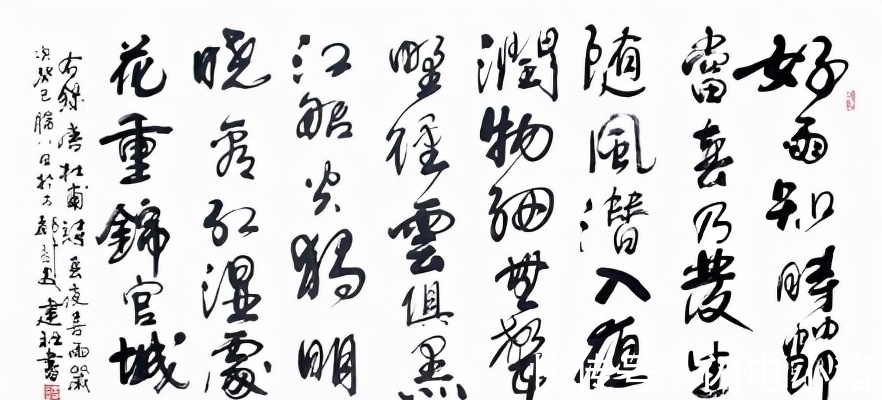 好雨知時節
當春乃發生
随風潛入夜
潤物細無聲
野徑雲俱黑
江船火獨明
曉看紅濕處
花重錦官城
右錄唐杜甫詩春夜喜雨歲
次癸巳臘八日於古建書